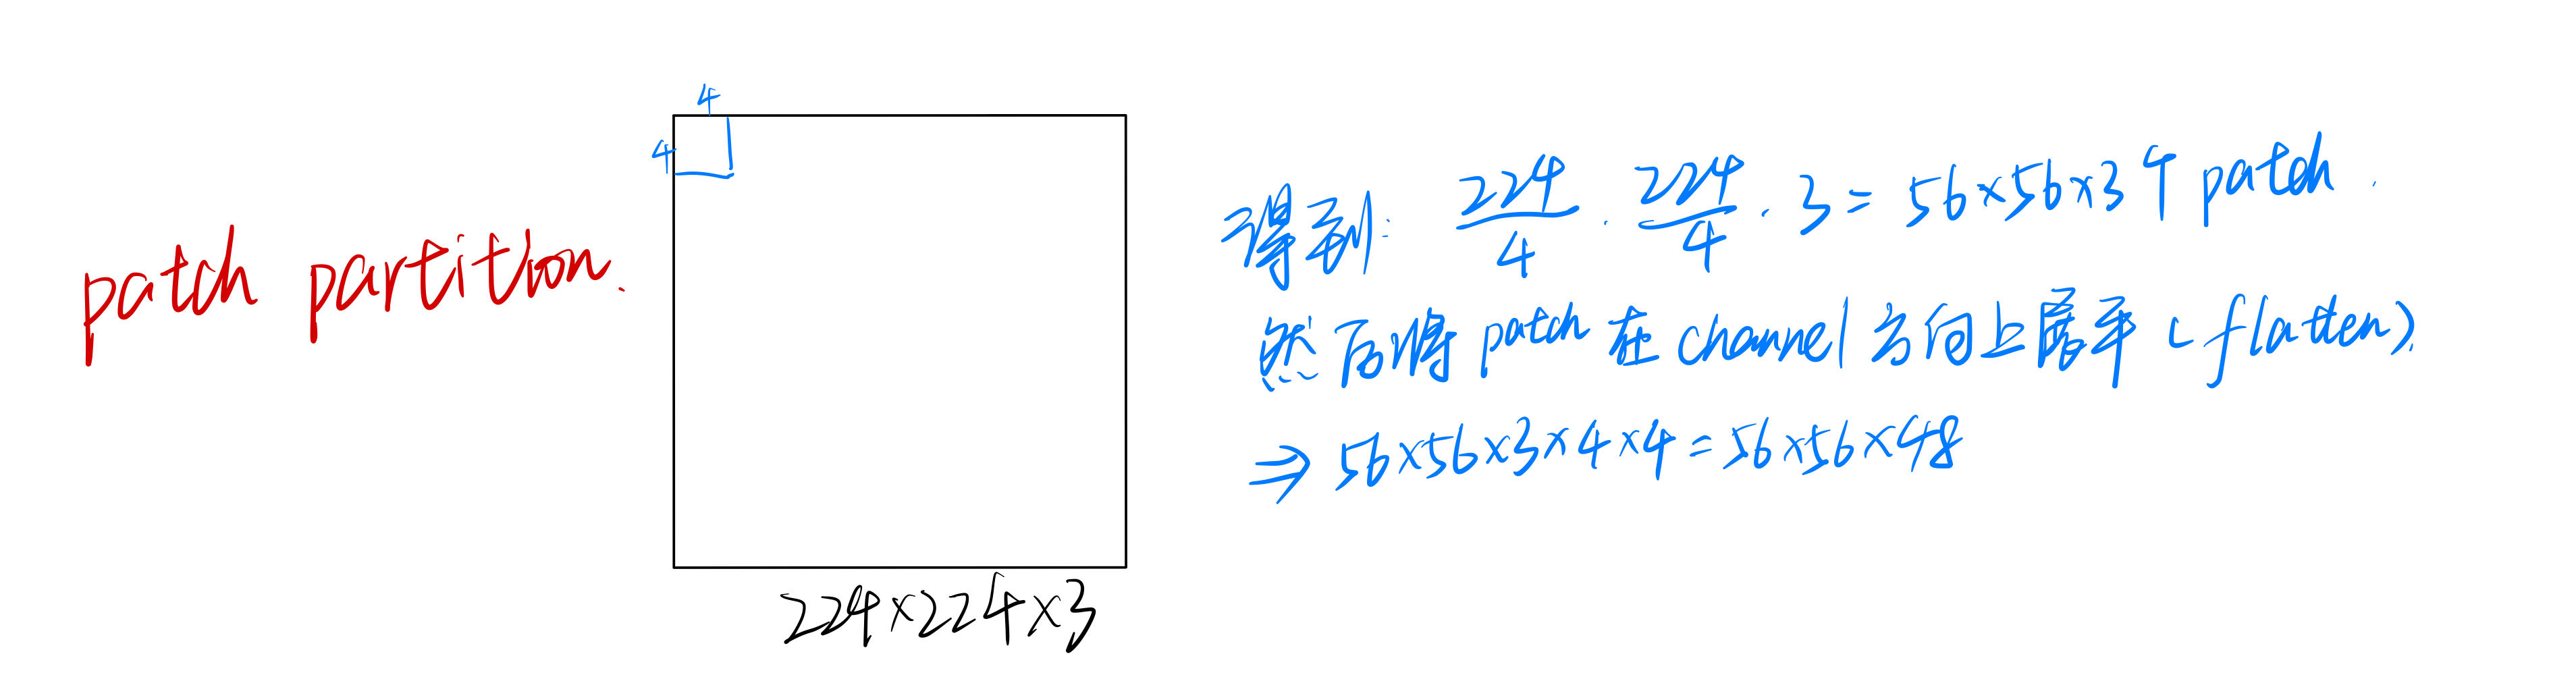 patch partition.
4
4
224×224×3
得到: 224/4 · 224/4 · 3 = 56×56×3个 patch.
然后将 patch 在 channel 方向上展平 (flatten).
⇒ 56×56×3×4×4 = 56×56×48